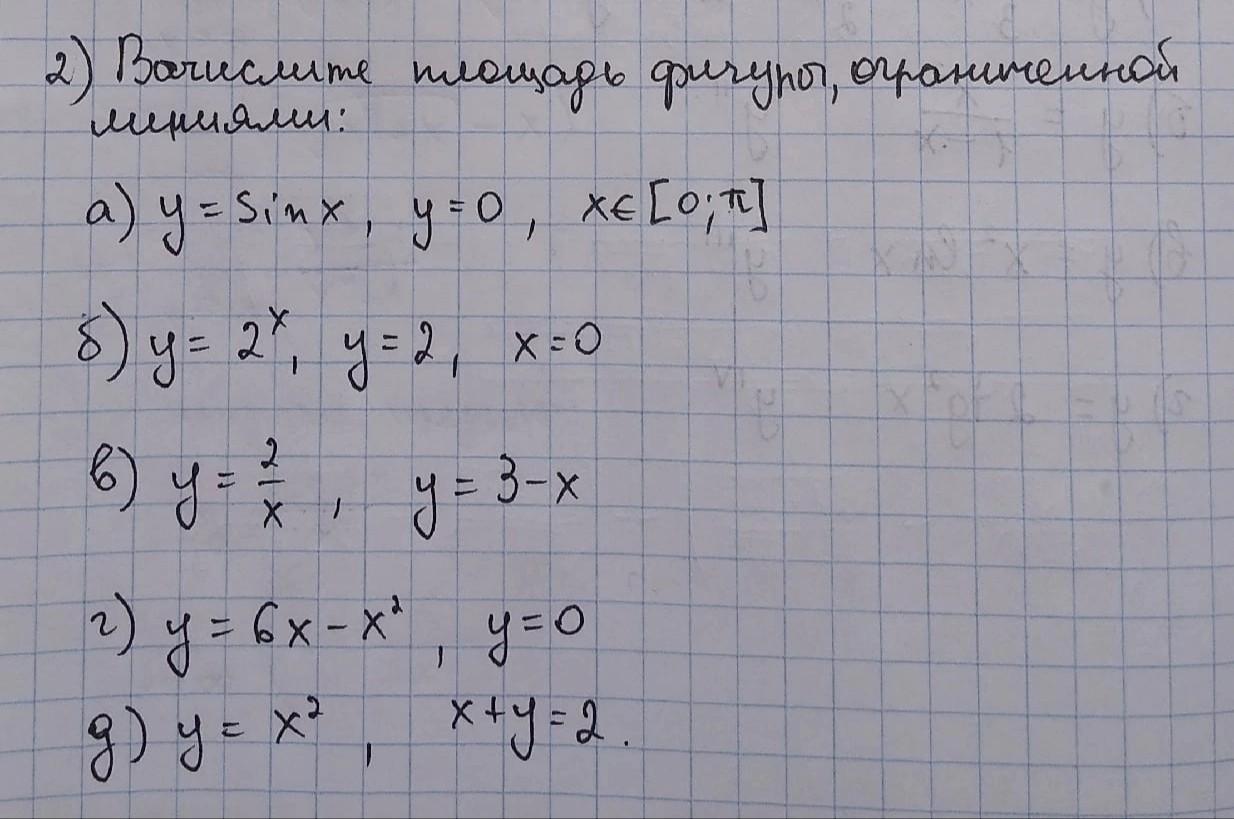 2) Вычислите площадь фигуры, ограниченной
линиями:
а) y = sin x, y = 0, x ∈ [0; π]
б) y = 2ˣ, y = 2, x = 0
в) y = 2/x, y = 3 - x
г) y = 6x - x², y = 0
д) y = x², x + y = 2.